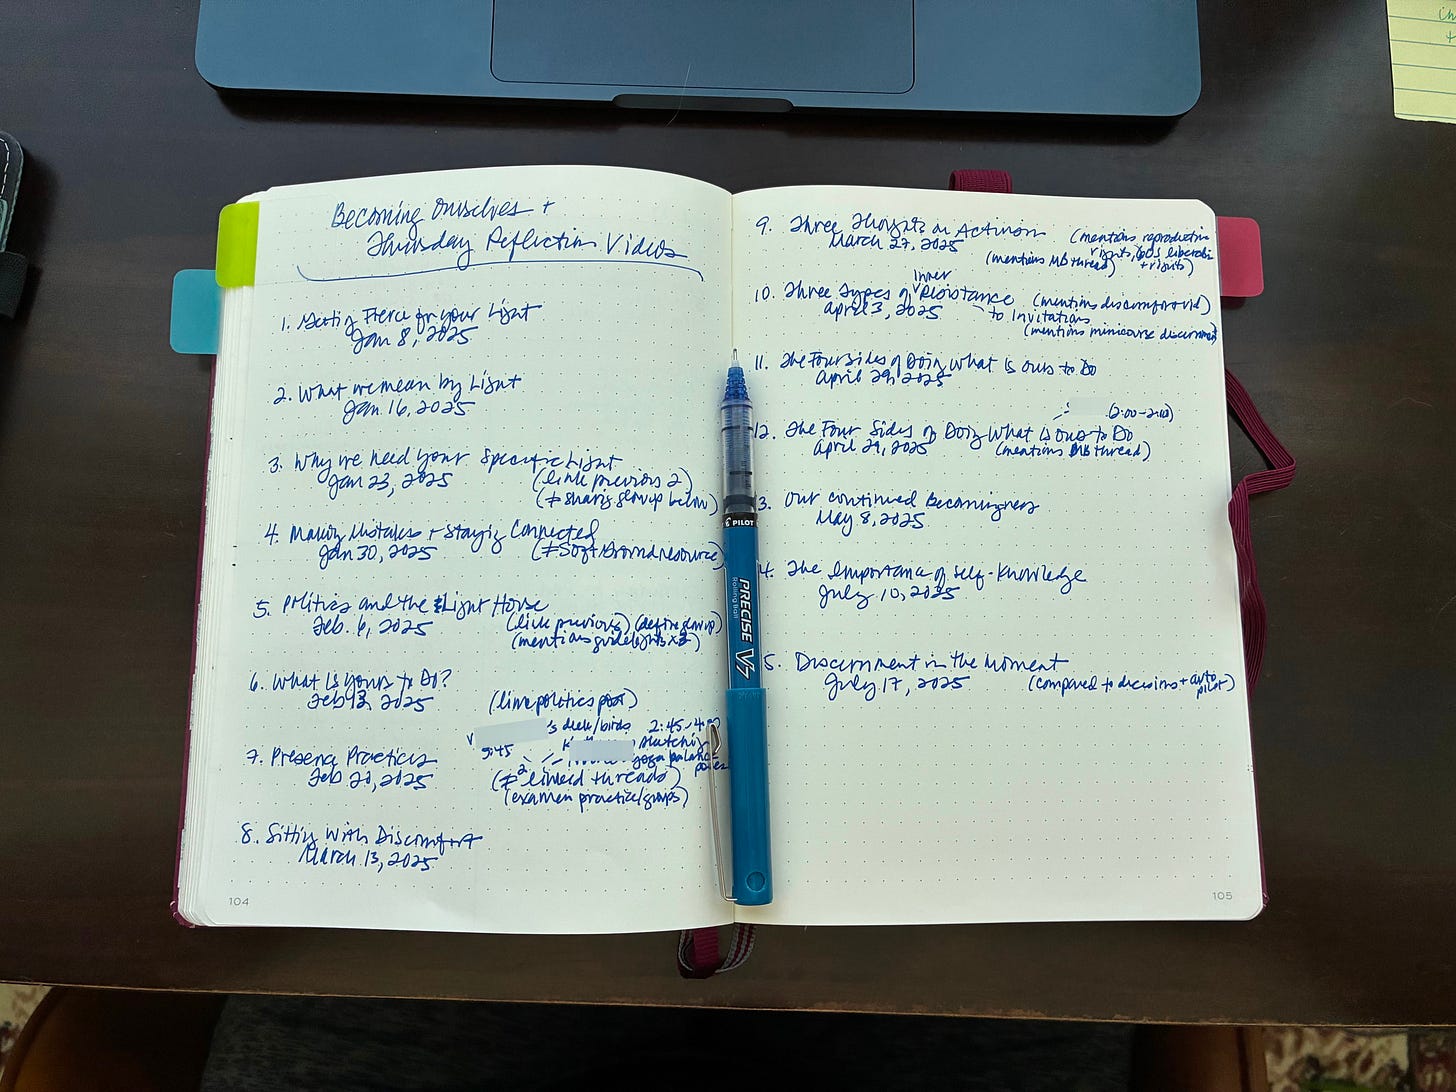 Becoming Ourselves +
Thursday Reflection Videos
1. Getting Fierce for your Light
Jan 8, 2025
2. What we mean by Light
Jan. 16, 2025
3. Why we need your Specific Light
Jan 23, 2025 (link previous 2)
(≠ sharing glow up below)
4. Making Mistakes + Staying Connected
Jan 30, 2025 (≠ Soft Ground resource)
5. Politics and the Light House
Feb. 6, 2025 (link previous) (define glow up)
(mentions guidelights x2)
6. What Is Yours to Do?
Feb 13, 2025 (link politics post)
's deck/birds 2:45-4:00
9:45
sketching
7. Presence Practices
yoga balance
poses
Feb 20, 2025 (≠ 2 linked threads)
(examen practice/groups)
8. Sitting With Discomfort
March 13, 2025
104
9. Three Thoughts on Activism
March 27, 2025 (mentions reproductive
rights, 60s liberation
(mentions MB thread) + rights)
10. Three Types of Inner Resistance (mentions discomfort vid)
April 3, 2025 to Invitations
(mentions minicourse discernment)
11. The Four Sides of Doing What Is Ours to Do
April 29, 2025
(2:00-2:10)
12. The Four Sides of Doing What Is Ours to Do
April 29, 2025 (mentions MB thread)
3. Our Continued Becomingness
May 8, 2025
4. The Importance of Self-Knowledge
July 10, 2025
5. Discernment in the Moment
July 17, 2025 (compared to decisions + auto
pilot)
105
PILOT
PRECISE V7
Rolling Ball